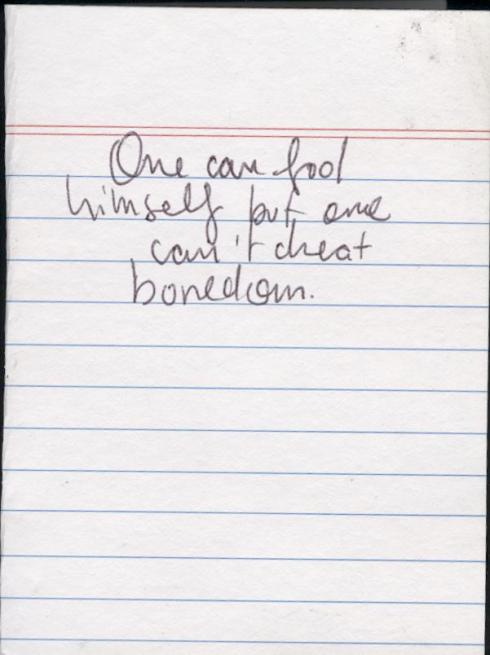 One can fool
himself but one
can't cheat
boredom.